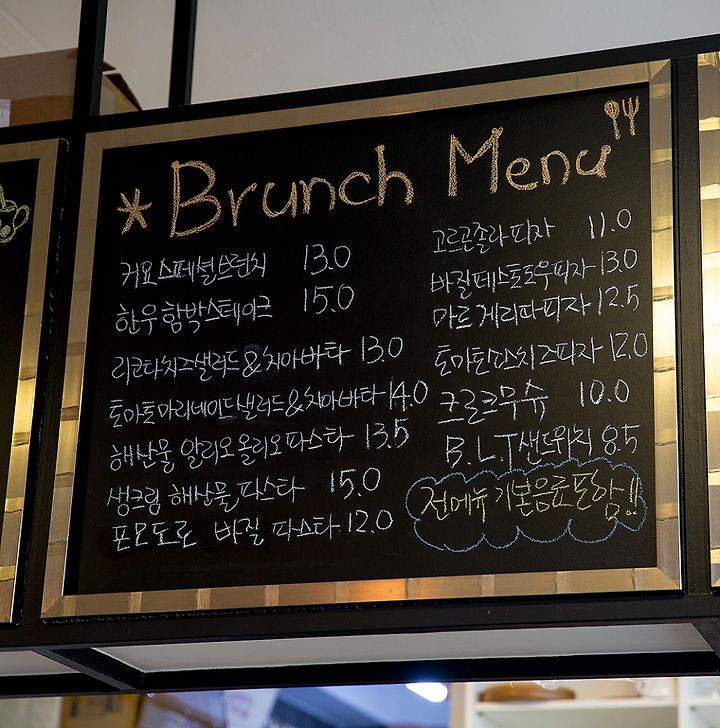 * Brunch Menu
커요스페셜브런치 13.0
한우함박스테이크 15.0
리코타치즈샐러드&치아바타 13.0
토마토마리네이드샐러드&치아바타 14.0
해산물 알리오올리오파스타 13.5
생크림 해산물파스타 15.0
포모도로 바질 파스타 12.0
고르곤졸라피자 11.0
바질페스토도우피자 13.0
마르게리따피자 12.5
피자 12.0
크로크무슈 10.0
B.L.T샌드위치 8.5
전메뉴 기본음료포함!!